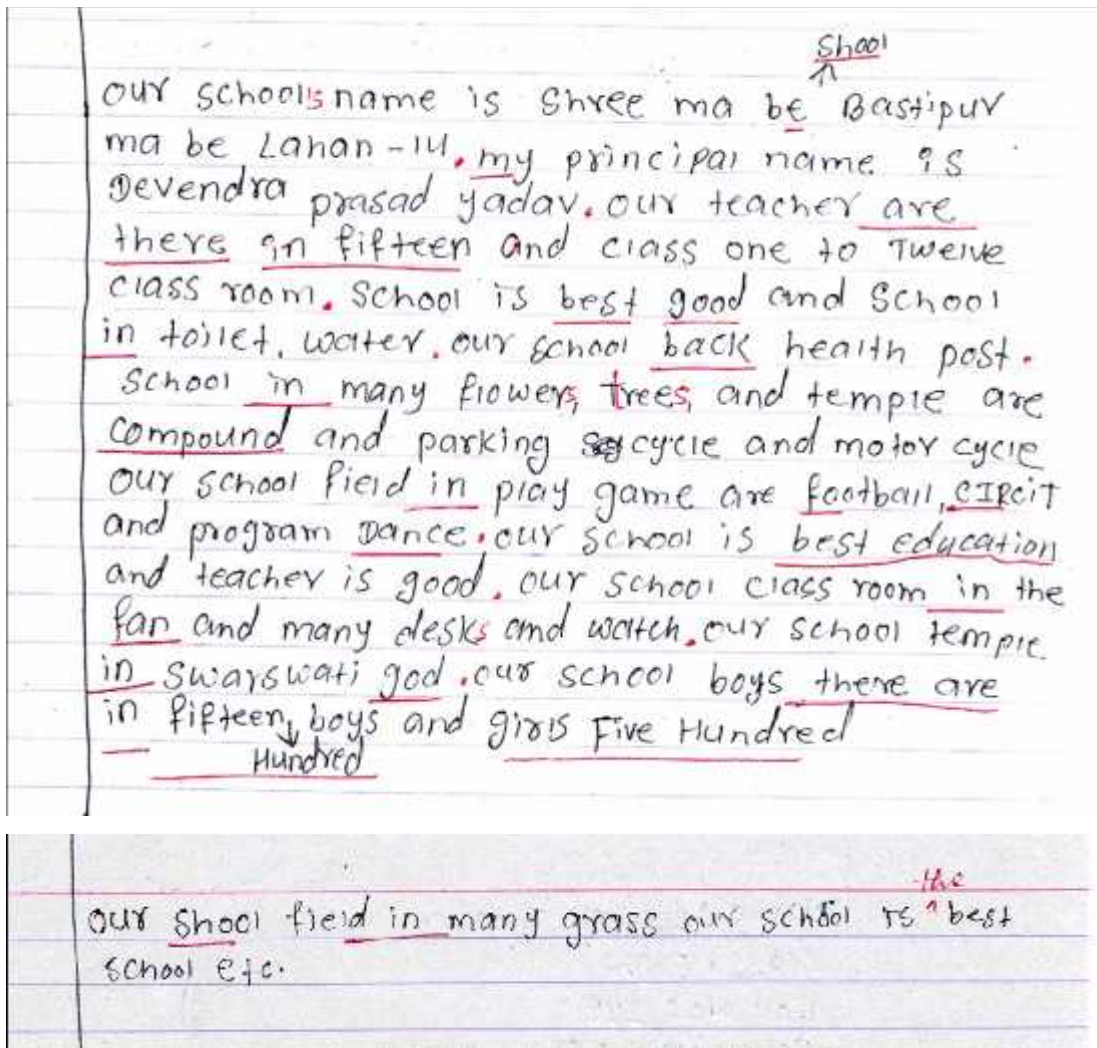 Shool
our school's name is Shree ma be Bastipur
ma be Lahan-14. my principal name is
Devendra prasad yadav. our teacher are
there in fifteen and class one to Twelve
class room. School is best good and School
in toilet, water. our school back health post.
School in many flowers, trees, and temple are
compound and parking cycle and motor cycle
our school field in play game are football, CIRCIT
and program Dance. our school is best education
and teacher is good. our school class room in the
fan and many desks and watch. our school temple
in Swarswati god. our school boys there are
in fifteen boys and girls Five Hundred
Hundred
the
our Shool field in many grass our school is best
School etc.